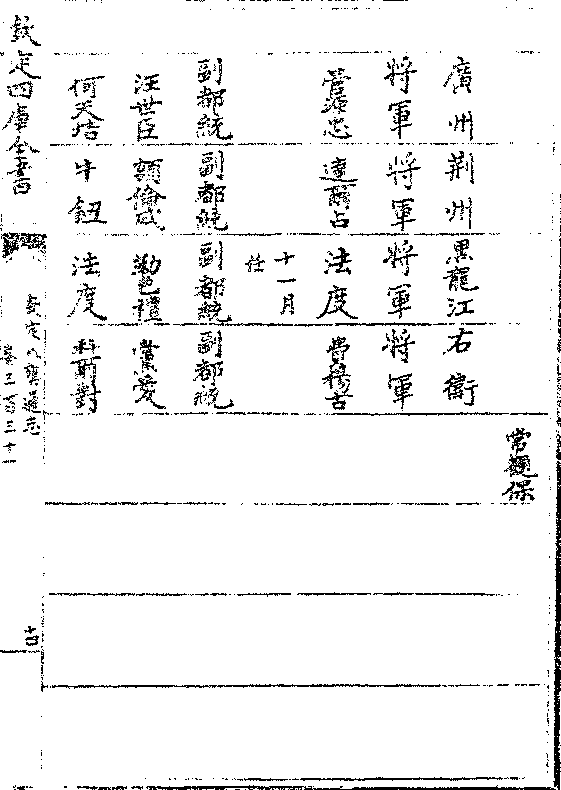 常 保
廣州 荆州 黑龍江 右衛
將軍 將軍 將軍 將軍
管源忠 達爾占 法度 費揚古
十一月
任
副都統 副都統 副都統 副都統
汪世臣 額倫 禮 愛
何天培 牛鈕 法度 科爾對
欽定四庫全書
欽定八旗通志
卷三百三十一